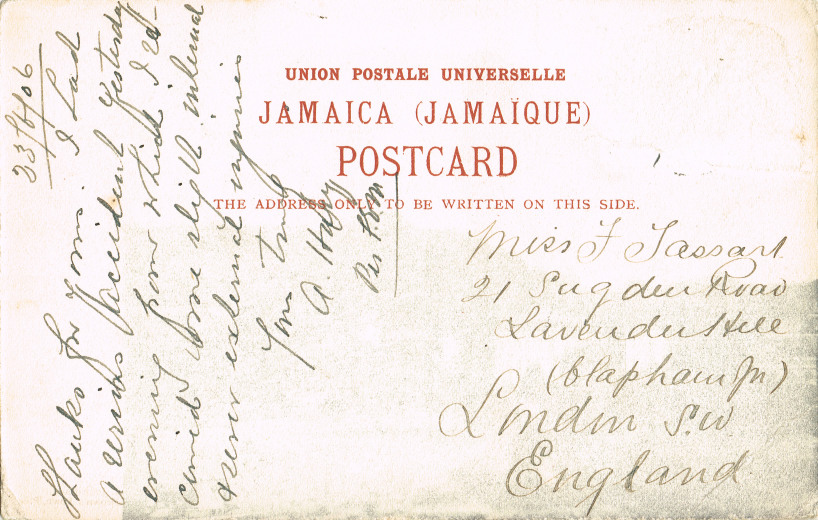 UNION POSTALE UNIVERSELLE
JAMAICA (JAMAÏQUE)
POSTCARD
THE ADDRESS ONLY TO BE WRITTEN ON THIS SIDE.
Miss F Tassart
21 Sugden Road
Lavender Hill
(Clapham Jn)
London S.W
England
Thanks for yours. I had
a serious accident yesterday
evening from which I re-
ceived some slight internal
& sever external injuries
Yours truly
A.
Per